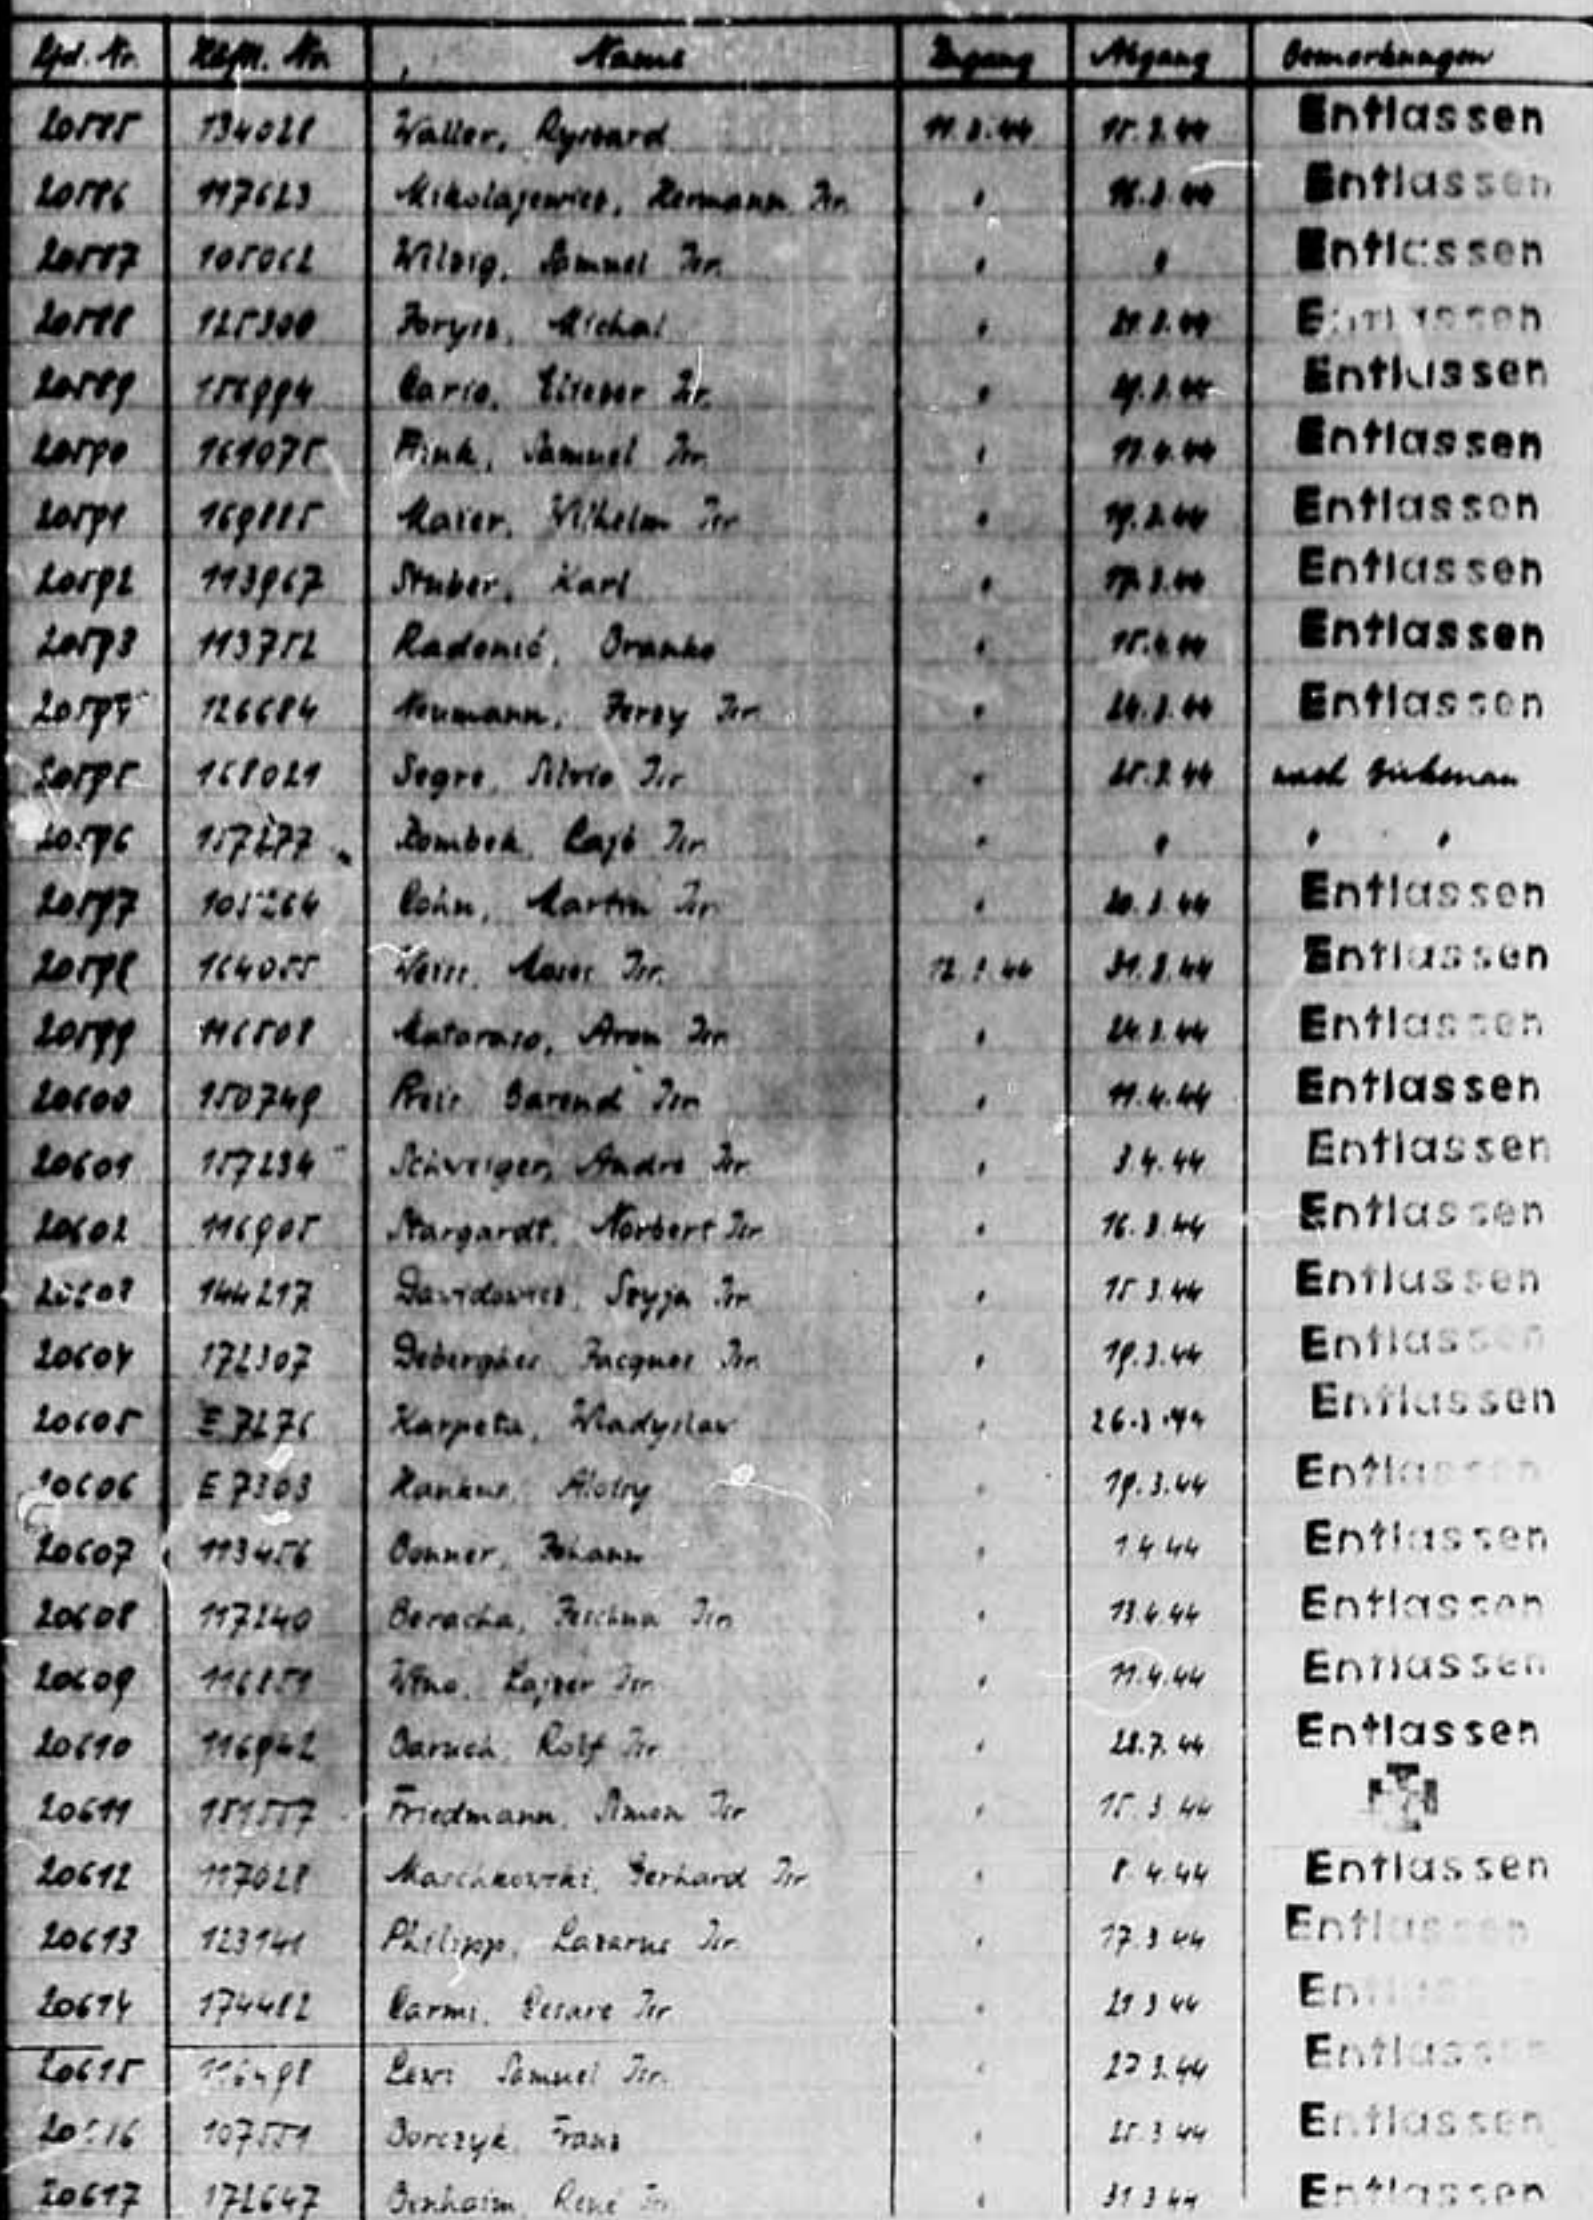 Lfd. Nr. Häftl. Nr. Name Zugang Abgang Bemerkungen
20585 134028 Waller, Ryszard 11.3.44 15.3.44 Entlassen
20586 117623 Mikolajewicz, Hermann Isr. " 16.3.44 Entlassen
20587 105062 Samuel Isr. " " Entlassen
20588 125300 Forysz, Michal " 21.3.44 Entlassen
20589 Isr. " Entlassen
20590 161075 Samuel Isr. " Entlassen
20591 169885 Maier, Wilhelm Isr. " 19.3.44 Entlassen
20592 113967 Stuber, Karl " 17.3.44 Entlassen
20593 113752 Radonić, Branko " 15.4.44 Entlassen
20594 126684 Neumann, Isr. " 24.3.44 Entlassen
20595 168021 Segre, Silvio Isr. " 25.3.44 nach Birkenau
20596 157277 Rombek, Isr. " " " "
20597 105264 Cohn, Martin Isr. " 20.3.44 Entlassen
20598 164055 Weiss, Isr. 12.3.44 31.3.44 Entlassen
20599 116508 Mataraso, Aron Isr. " 24.3.44 Entlassen
20600 150749 Barend Isr. " 11.4.44 Entlassen
20601 157234 Schweiger, André Isr. " 3.4.44 Entlassen
20602 116905 Stargardt, Norbert Isr. " 16.3.44 Entlassen
20603 144217 Dawidowicz, Isr. " 15.3.44 Entlassen
20604 172307 Jacques Isr. " 19.3.44 Entlassen
20605 E 7276 Karpeta, Wladyslaw " 26.3.44 Entlassen
20606 E 7303 " 19.3.44 Entlassen
20607 113456 Bonner, Johann " 1.4.44 Entlassen
20608 117240 Beracha, Isr. " 13.4.44 Entlassen
20609 116851 Lajzer Isr. " 11.4.44 Entlassen
20610 116942 Baruch, Rolf Isr. " 28.7.44 Entlassen
20611 Friedmann, Simon Isr. " 15.3.44
20612 117028 Maschkowski, Gerhard Isr. " 8.4.44 Entlassen
20613 123141 Philipp, Lazarus Isr. " 17.3.44 Entlassen
20614 174482 Carmi, Cesare Isr. " 21.3.44 Entlassen
20615 116498 Lewi Samuel Isr. " 27.3.44 Entlassen
20616 107551 Borczyk, Franz " 25.3.44 Entlassen
20617 172647 Benhaim, René Isr. " 31.3.44 Entlassen